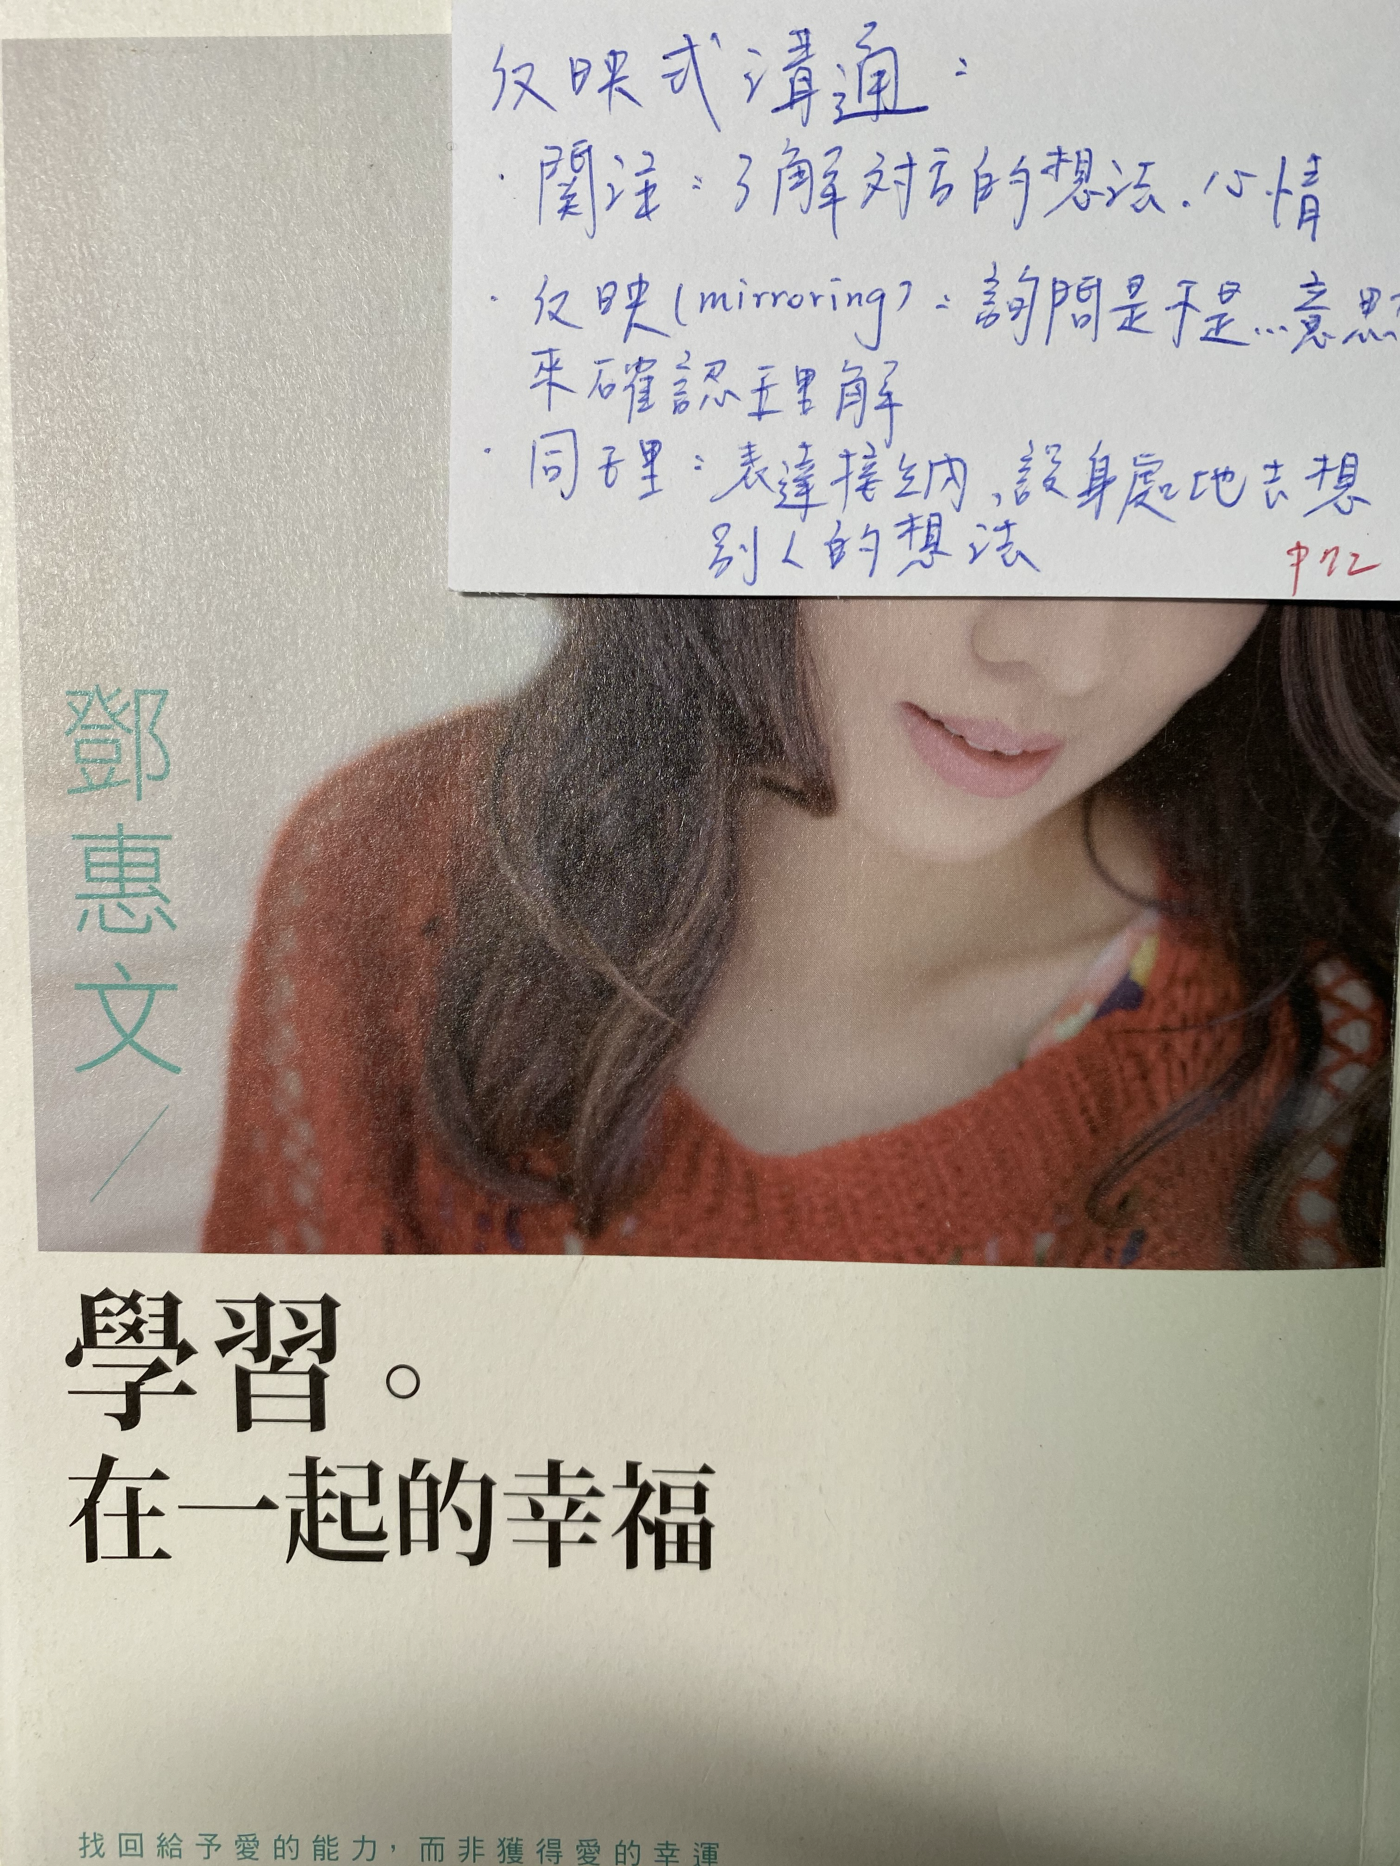 反映式溝通:
·關注:了解对方的想法.心情
·反映(mirroring):詢問是不是...意思
來確認理解
·同理:表達接納,設身處地去想
別人的想法
P72
鄧惠文/
學習。
在一起的幸福
找回給予愛的能力,而非獲得愛的幸運